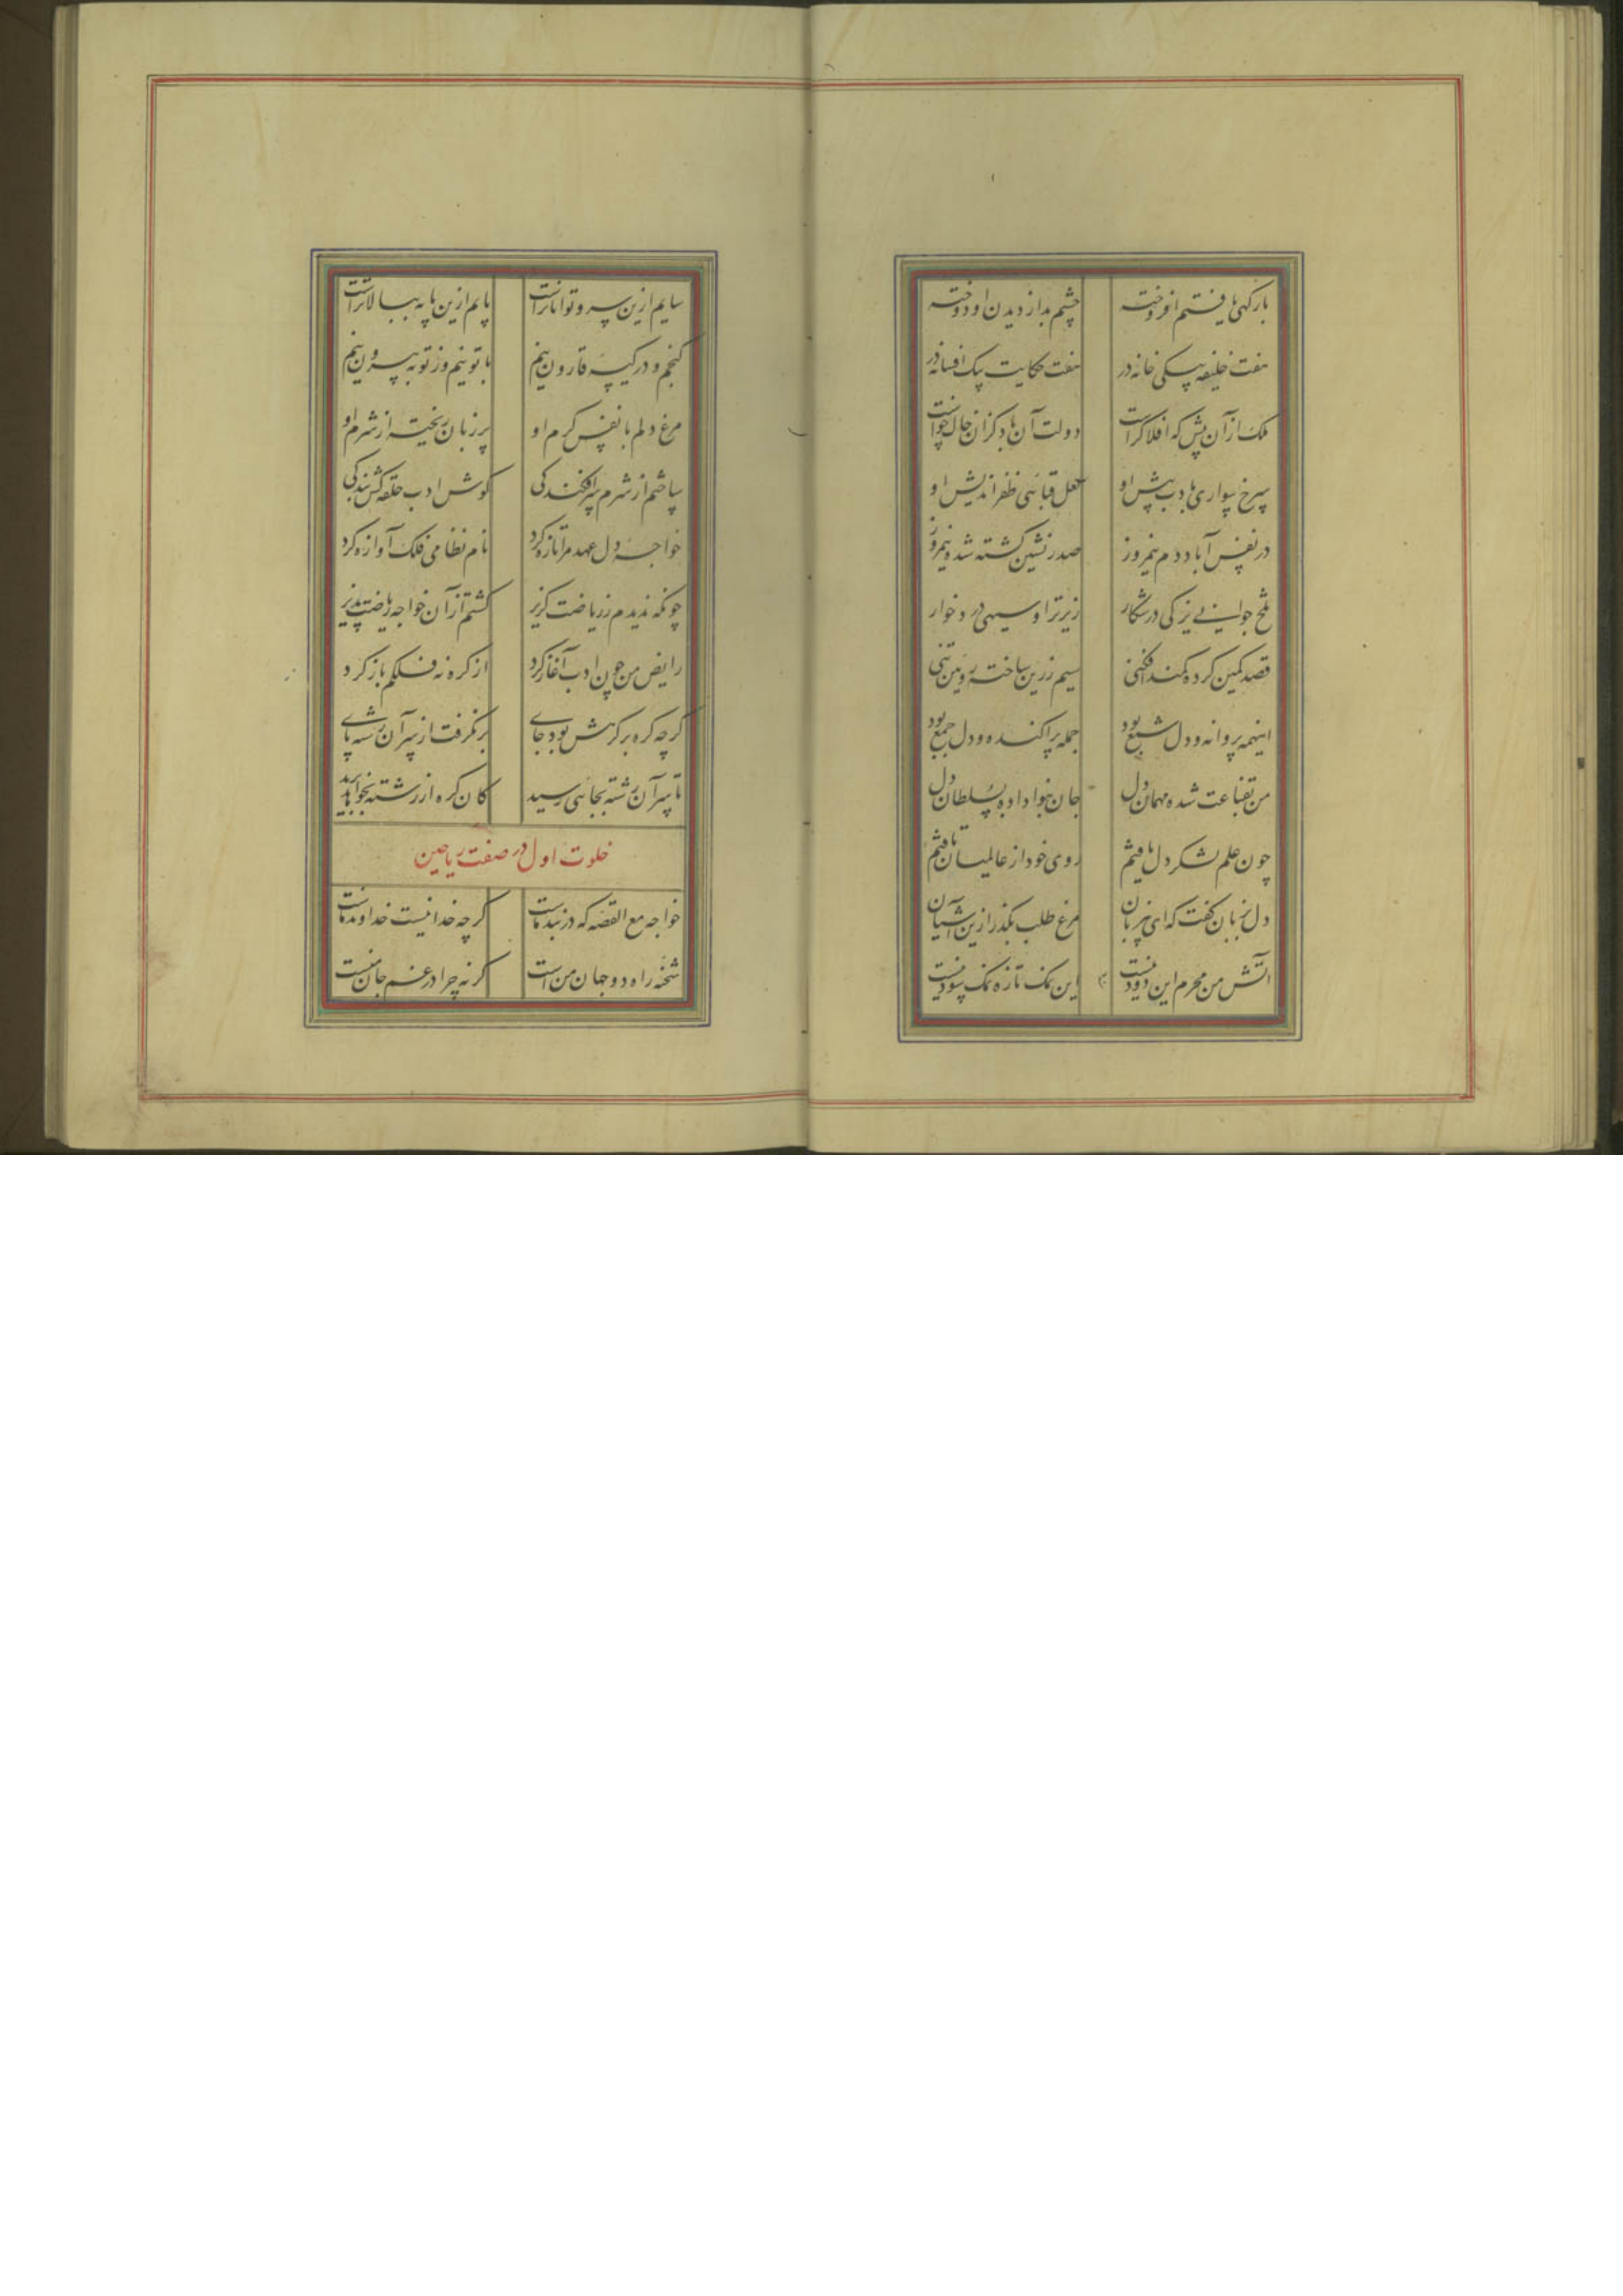 بارگهی یافتم افروخته چشم بد از دیدن او دوخته
هفت خلیفه بیکی خانه در هفت حکایت بیک افسانه در
ملک از آن پیش که افلاک راست دولت آن خاک که آن خاک راست
در نفس آباد دم نیم روز صدر نشین گشته شه نیمروز
سرخ سواری بادب پیش او لعل قبائی ظفر اندیش او
تلخ جوانی یزکی در شکار زیرتر از وسیهی درد خوار
قصد کمین کرده کمند افکنی سیم زرین ساخته روئین تنی
اینهمه پروانه و دل شمع بود جمله پراکنده و دل جمع بود
من بقناعت شده مهمان دل جان بنوا داده بسلطان دل
چون علم لشکر دل یافتم روی خود از عالمیان تافتم
دل بزبان گفت که ای بیزبان مرغ طلب بگذر ازین آشیان
آتش من محرم این دود نیست این نمک تازه نمک سود نیست
سایم ازین سرو تواناتراست پایم ازین پایه ببالاتراست
گنجم و در کیسه قارون نیم با تو نیم وز تو به بیرون نیم
مرغ دلم با نفس گرم او پر زبان ریخته از شرم او
ساختم از شرم سرافکندگی گوش ادب حلقه کش بندگی
خواجه دل عهد مرا تازه کرد نام نظامی فلک آوازه کرد
چونکه ندیدم ز ریاضت گزیر گشتم از آن خواجه ریاضت پذیر
رایض من چون ادب آغاز کرد از گره نه فلکم باز کرد
گرچه گره بر گرهش بود جای برنگرفت از سر آن رشته پای
تا سر آن رشته بجائی رسید کان گره از رشته بخواهد برید
خلوت اول در صفت ریاحین
خواجه مع القصه که در بند ماست گرچه خدا نیست خداوند ماست
شحنه راه دو جهان من است گرنه چرا در غم جان منست